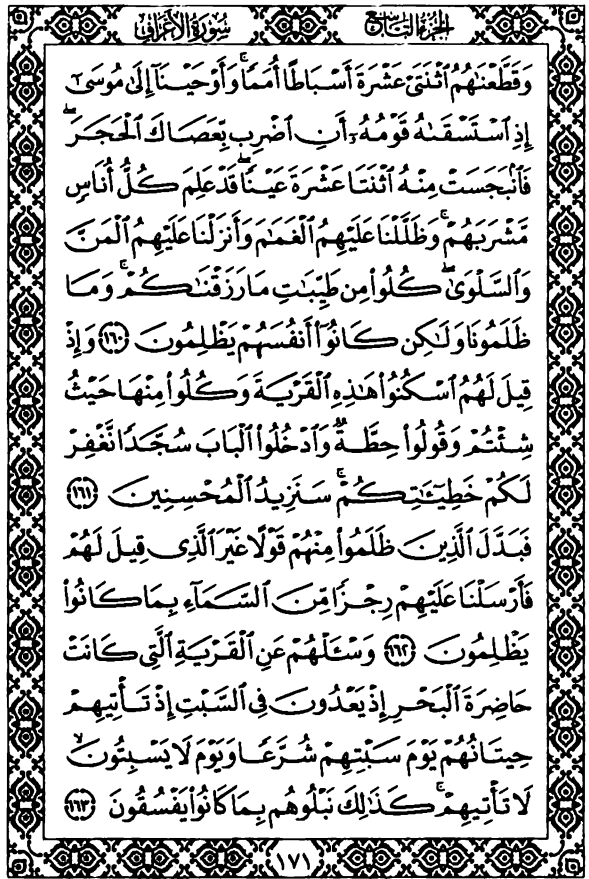 الجزء التاسع سورة الأعراف
وَقَطَّعْنَٰهُمُ ٱثْنَتَىْ عَشْرَةَ أَسْبَاطًا أُمَمًا ۚ وَأَوْحَيْنَآ إِلَىٰ مُوسَىٰٓ
إِذِ ٱسْتَسْقَىٰهُ قَوْمُهُۥٓ أَنِ ٱضْرِب بِّعَصَاكَ ٱلْحَجَرَ ۖ
فَٱنۢبَجَسَتْ مِنْهُ ٱثْنَتَا عَشْرَةَ عَيْنًا ۖ قَدْ عَلِمَ كُلُّ أُنَاسٍ
مَّشْرَبَهُمْ ۚ وَظَلَّلْنَا عَلَيْهِمُ ٱلْغَمَٰمَ وَأَنزَلْنَا عَلَيْهِمُ ٱلْمَنَّ
وَٱلسَّلْوَىٰ ۖ كُلُوا۟ مِن طَيِّبَٰتِ مَا رَزَقْنَٰكُمْ ۚ وَمَا
ظَلَمُونَا وَلَٰكِن كَانُوٓا۟ أَنفُسَهُمْ يَظْلِمُونَ ١٦٠ وَإِذْ
قِيلَ لَهُمُ ٱسْكُنُوا۟ هَٰذِهِ ٱلْقَرْيَةَ وَكُلُوا۟ مِنْهَا حَيْثُ
شِئْتُمْ وَقُولُوا۟ حِطَّةٌ وَٱدْخُلُوا۟ ٱلْبَابَ سُجَّدًا نَّغْفِرْ
لَكُمْ خَطِيٓـَٰٔتِكُمْ ۚ سَنَزِيدُ ٱلْمُحْسِنِينَ ١٦١
فَبَدَّلَ ٱلَّذِينَ ظَلَمُوا۟ مِنْهُمْ قَوْلًا غَيْرَ ٱلَّذِى قِيلَ لَهُمْ
فَأَرْسَلْنَا عَلَيْهِمْ رِجْزًا مِّنَ ٱلسَّمَآءِ بِمَا كَانُوا۟
يَظْلِمُونَ ١٦٢ وَسْـَٔلْهُمْ عَنِ ٱلْقَرْيَةِ ٱلَّتِى كَانَتْ
حَاضِرَةَ ٱلْبَحْرِ إِذْ يَعْدُونَ فِى ٱلسَّبْتِ إِذْ تَأْتِيهِمْ
حِيتَانُهُمْ يَوْمَ سَبْتِهِمْ شُرَّعًا وَيَوْمَ لَا يَسْبِتُونَ ۙ
لَا تَأْتِيهِمْ ۚ كَذَٰلِكَ نَبْلُوهُم بِمَا كَانُوا۟ يَفْسُقُونَ ١٦٣
١٧١